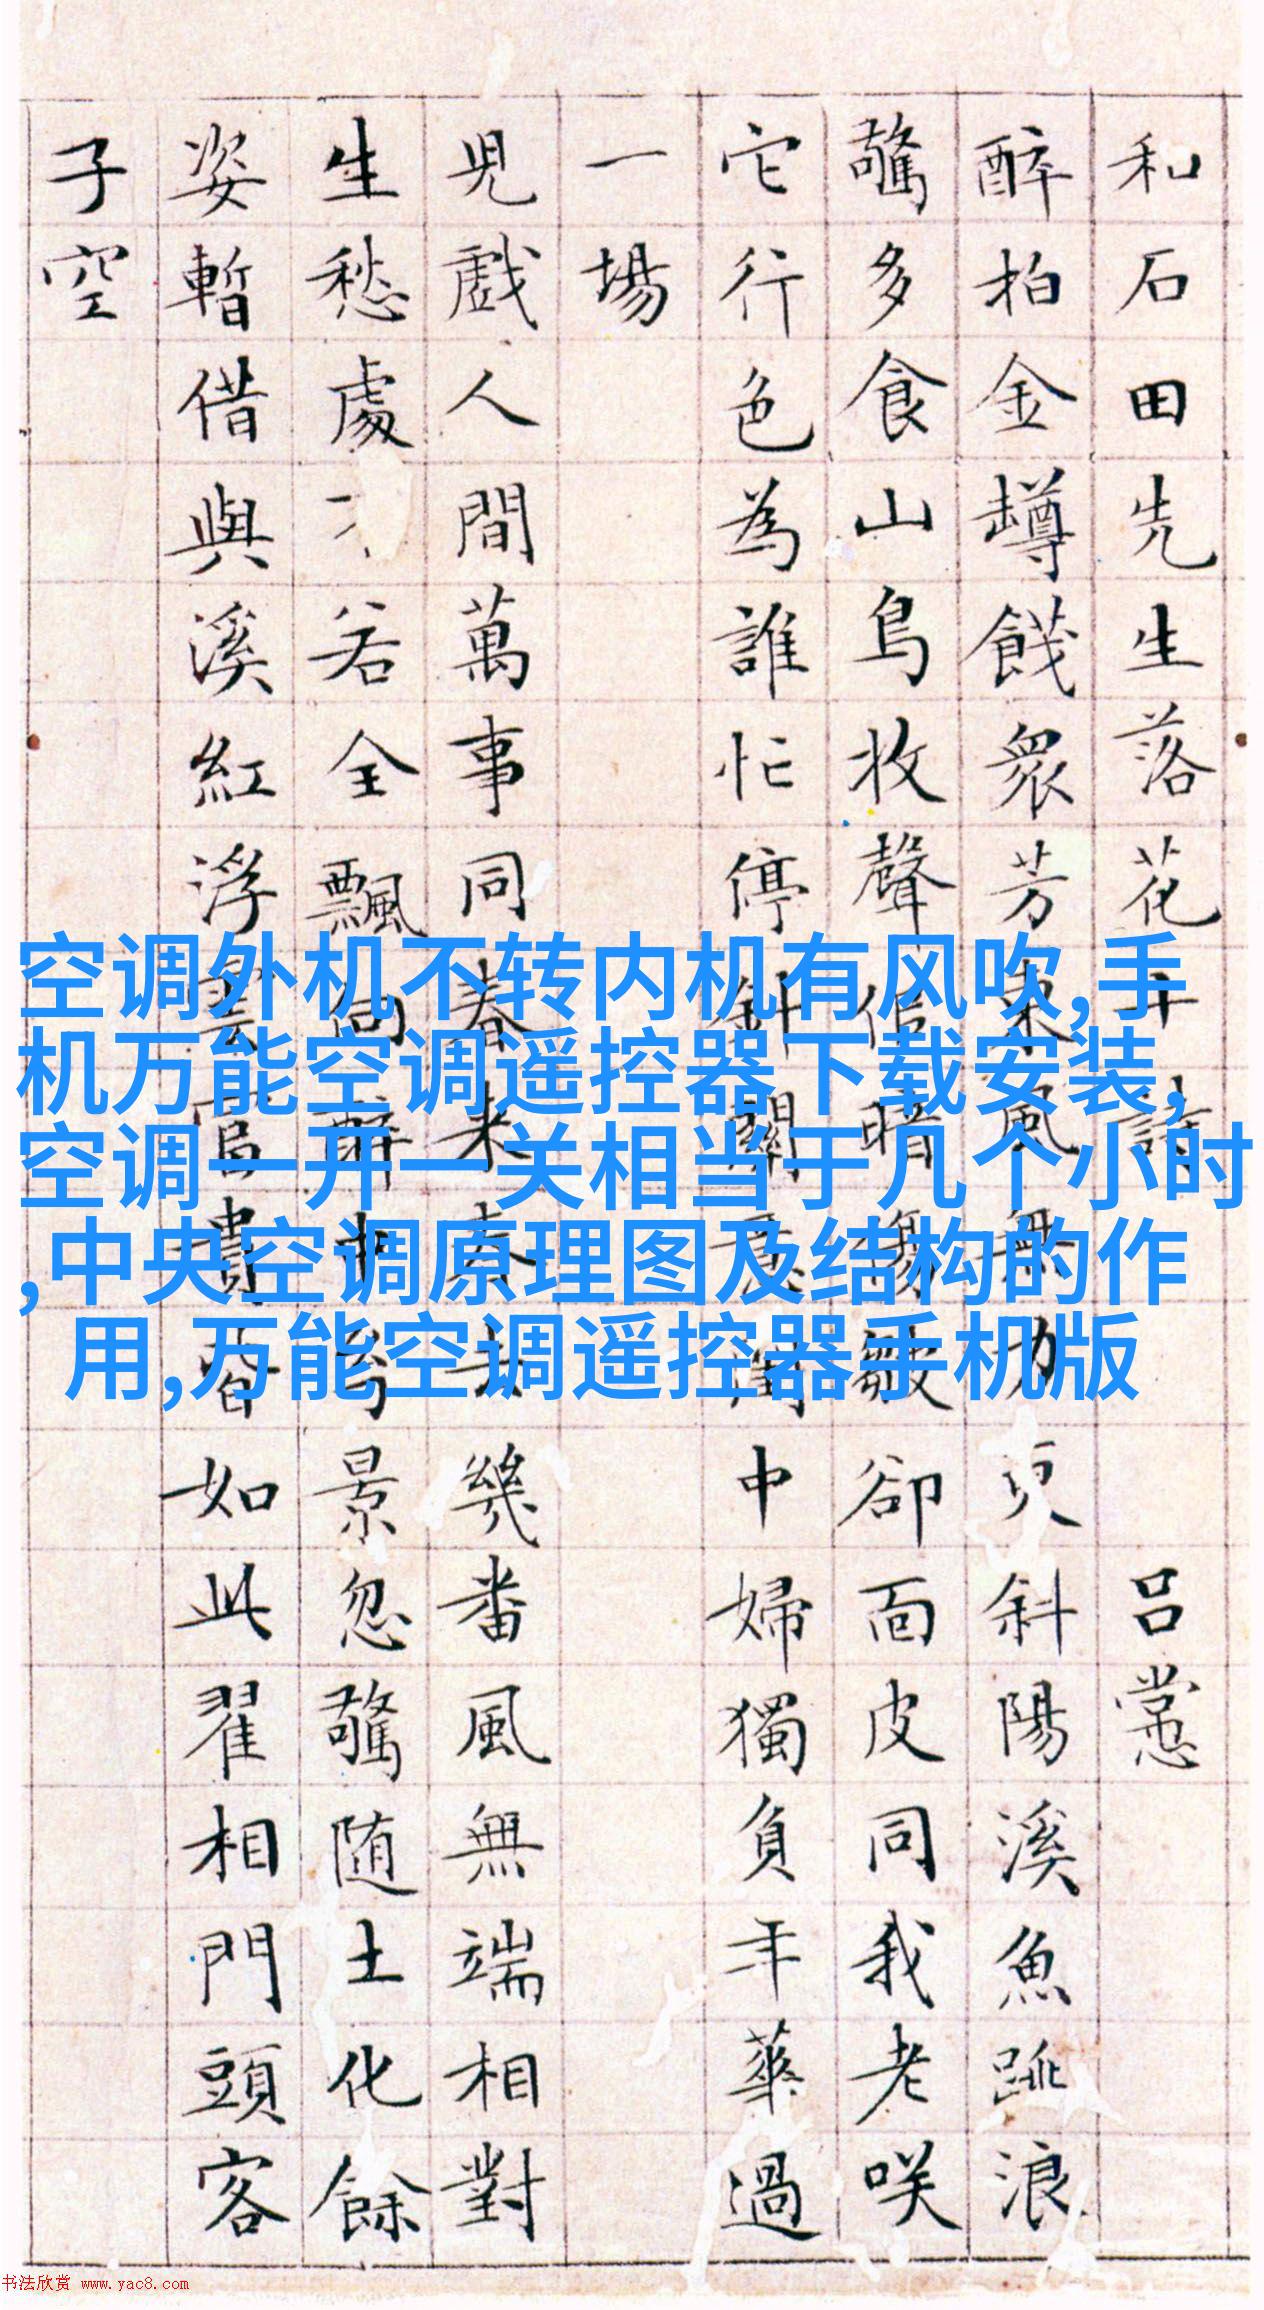 和石田先生落花十詩 吕㦂
醉拍金罇餞衆芳東風無力更斜陽溪魚跳浪
驚多食山鳥收聲皺卻面皮同我老咲
它行色為誰忙停針中婦獨負年華過
一場
兒戲人間萬事同春来春去幾番風無端相對
生愁處不若全飄向醉中景忽驚随土化餘
姿暫借與溪紅浮雲富貴皆如此翟相門頭客
子空
空调外机不转内机有风吹,手
机万能空调遥控器下载安装,
空调一开一关相当于几个小时
,中央空调原理图及结构的作
用,万能空调遥控器手机版
书法欣赏 www.yac8.com